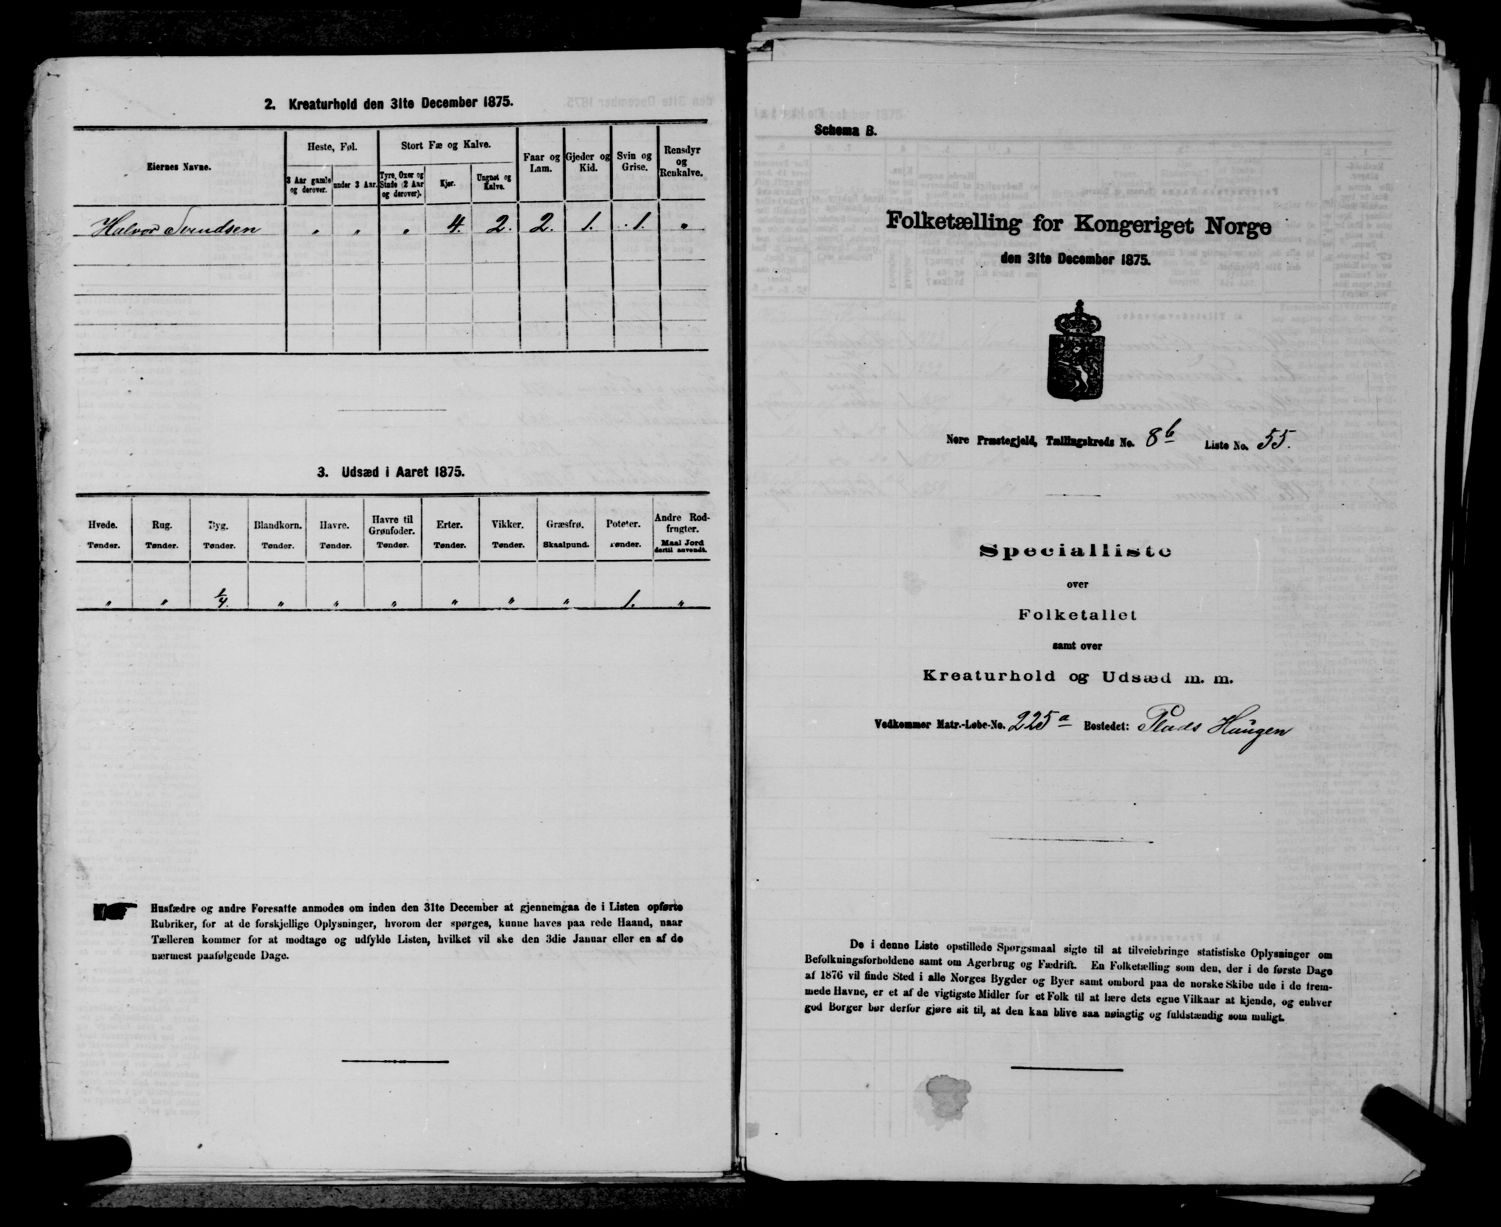 2. Kreaturhold den 31te December 1875.
Eiernes Navne.
Heste, Føl.
Stort Fæ og Kalve.
Faar og Lam.
Gjeder og Kid.
Svin og Grise.
Rensdyr og Renkalve.
3 Aar gamle og derover.
under 3 Aar.
Tyre, Oxer og Stude (2 Aar og derover).
Kjør.
Ungnøt og Kalve.
Halvor Svendsen " " " 4. 2. 2. 1. 1. "
3. Udsæd i Aaret 1875.
Hvede. Rug. Byg. Blandkorn. Havre. Havre til Grønfoder. Erter. Vikker. Græsfrø. Poteter. Andre Rodfrugter.
Tønder. Tønder. Tønder. Tønder. Tønder. Tønder. Tønder. Tønder. Skaalpund. Tønder. Maal Jord dertil anvendt.
" " 1/4. " " " " " " 1. "
Husfædre og andre Foresatte anmodes om inden den 31te December at gjennemgaa de i Listen opførte
Rubriker, for at de forskjellige Oplysninger, hvorom der spørges, kunne haves paa rede Haand, naar
Tælleren kommer for at modtage og udfylde Listen, hvilket vil ske den 3die Januar eller en af de
nærmest paafølgende Dage.
Schema B.
Folketælling for Kongeriget Norge
den 31te December 1875.
Nore Præstegjeld, Tællingskreds No. 8b Liste No. 55.
Specialliste
over
Folketallet
samt over
Kreaturhold og Udsæd m. m.
Vedkommer Matr.-Løbe-No. 225a Bostedet: Plads Haugen
De i denne Liste opstillede Spørgsmaal sigte til at tilveiebringe statistiske Oplysninger om
Befolkningsforholdene samt om Agerbrug og Fædrift. En Folketælling som den, der i de første Dage
af 1876 vil finde Sted i alle Norges Bygder og Byer samt ombord paa de norske Skibe ude i de frem-
mede Havne, er et af de vigtigste Midler for et Folk til at lære dets egne Vilkaar at kjende, og enhver
god Borger bør derfor gjøre sit til, at den kan blive saa nøiagtig og fuldstændig som muligt.